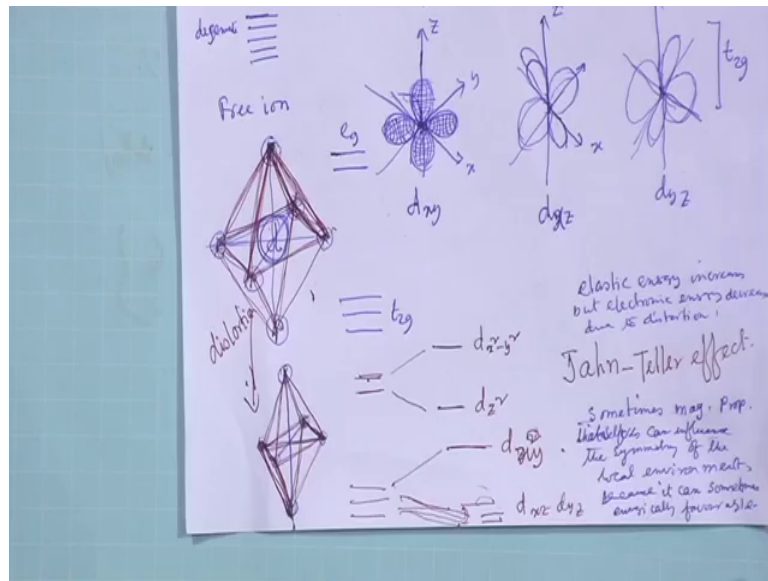 degenerate
Free ion
eg
z
y
x
dxy
z
x
dxz
dyz
t2g
d
distortion
t2g
elastic energy increases
but electronic energy decreases
due to distortion.
Jahn-Teller effect.
dx²-y²
dz²
dxy
dxz dyz
Sometimes mag. Prop.
can influence
the symmetry of the
local environment,
because it can sometimes
energically favourable